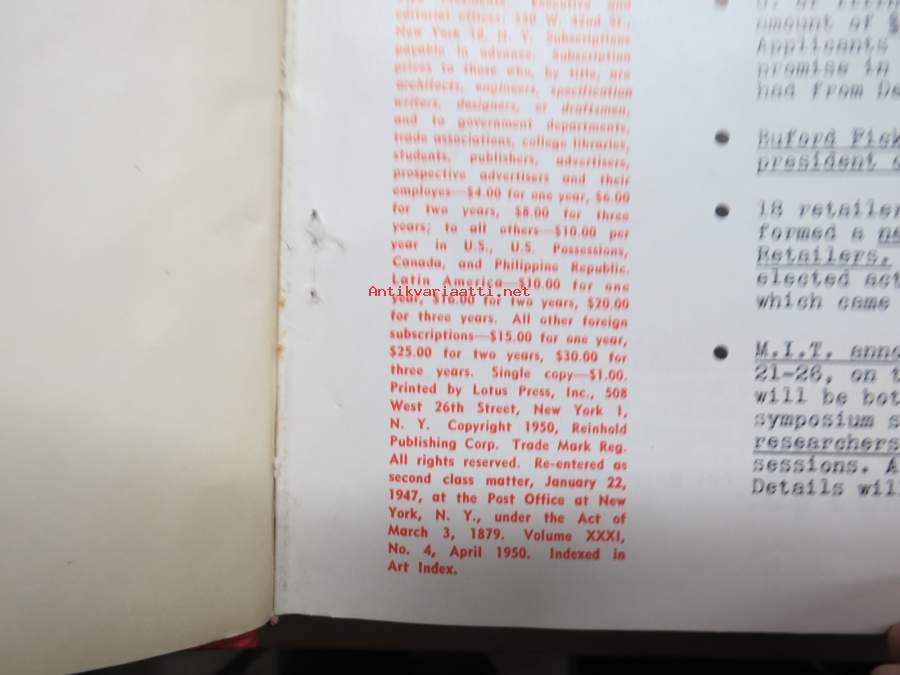 editorial offices: 330 W. 42nd St.,
New York 18, N. Y. Subscriptions
payable in advance. Subscription
prices to those who, by title, are
architects, engineers, specification
writers, designers, or draftsmen,
and to government departments,
trade associations, college libraries,
students, publishers, advertisers,
prospective advertisers and their
employes—$4.00 for one year, $6.00
for two years, $8.00 for three
years; to all others—$10.00 per
year in U.S., U.S. Possessions,
Canada, and Philippine Republic.
Latin America—$10.00 for one
Antikvariaatti.net
year, $16.00 for two years, $20.00
for three years. All other foreign
subscriptions—$15.00 for one year,
$25.00 for two years, $30.00 for
three years. Single copy—$1.00.
Printed by Lotus Press, Inc., 508
West 26th Street, New York 1,
N. Y. Copyright 1950, Reinhold
Publishing Corp. Trade Mark Reg.
All rights reserved. Re-entered as
second class matter, January 22,
1947, at the Post Office at New
York, N. Y., under the Act of
March 3, 1879. Volume XXXI,
No. 4, April 1950. Indexed in
Art Index.
amount of $
Applicants
promise in
had from De
Buford
president
18 retailer
formed a
Retailers,
elected act
which came
M.I.T. anno
21-26, on t
will be bot
symposium s
researchers
sessions. A
Details wil